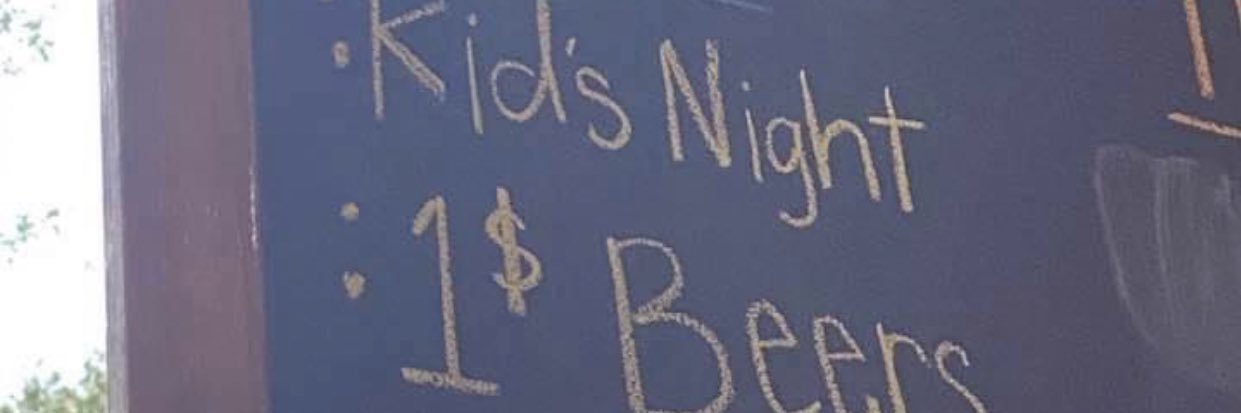 : Kid's Night
: 1$ Beers